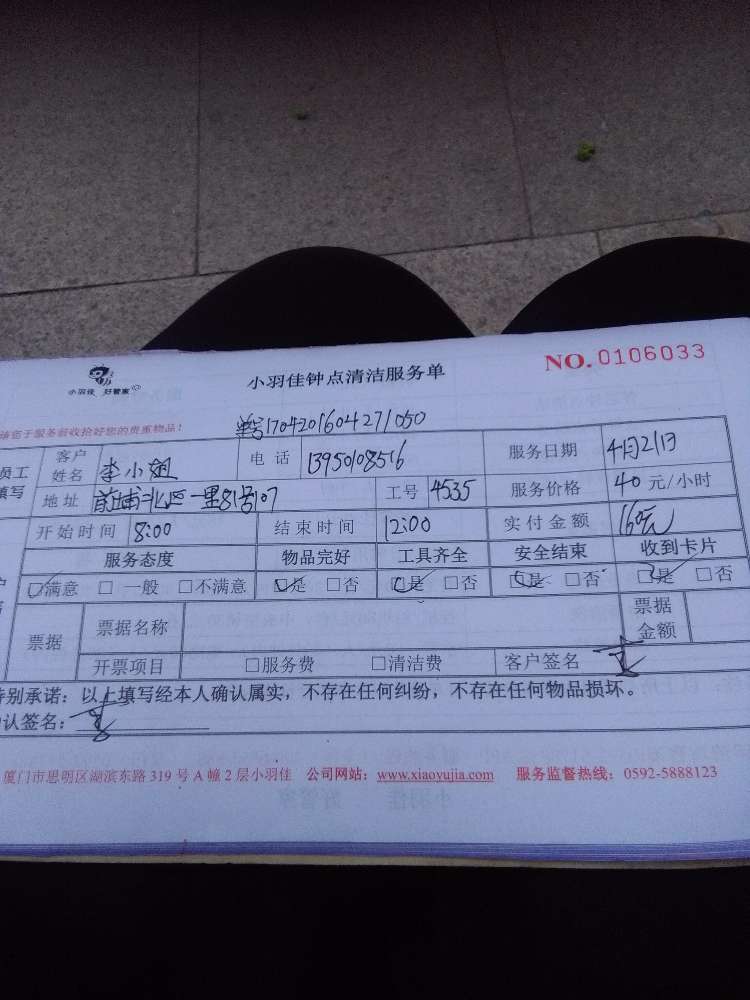 NO. 0106033
小羽佳 好管家
小羽佳钟点清洁服务单
您于服务前收拾好您的贵重物品!
单号1704201604271050
员工填写 客户姓名 李小姐 电话 13950108516 服务日期 4月21日
地址 前埔北区一里81号107 工号 4535 服务价格 40 元/小时
开始时间 8:00 结束时间 12:00 实付金额 160元
服务态度 物品完好 工具齐全 安全结束 收到卡片
☑满意 □一般 □不满意 ☑是 □否 ☑是 □否 ☑是 □否 ☑是 □否
票据 票据名称 票据金额
开票项目 □服务费 □清洁费 客户签名
特别承诺：以上填写经本人确认属实，不存在任何纠纷，不存在任何物品损坏。
确认签名：
厦门市思明区湖滨东路 319 号 A 幢 2 层小羽佳 公司网站：www.xiaoyujia.com 服务监督热线：0592-5888123